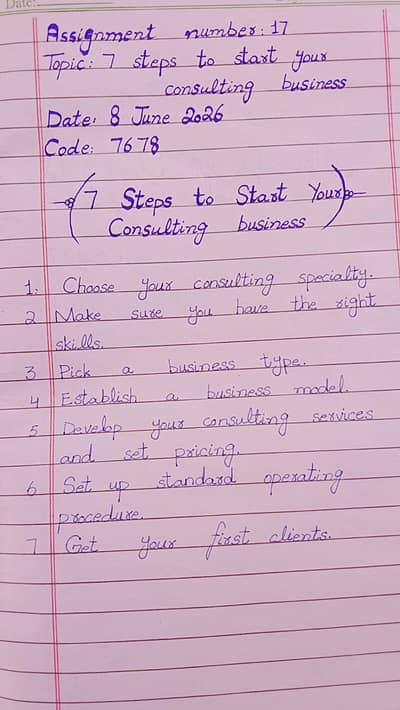 Date:
Assignment number: 17
Topic: 7 steps to start your
consulting business
Date: 8 June 2026
Code: 7678
7 Steps to Start Your
Consulting business
1. Choose your consulting specialty.
2 Make sure you have the right
skills.
3 Pick a business type.
4 Establish a business model.
5 Develop your consulting services
and set pricing.
6 Set up standard operating
procedure.
7 Get your first clients.